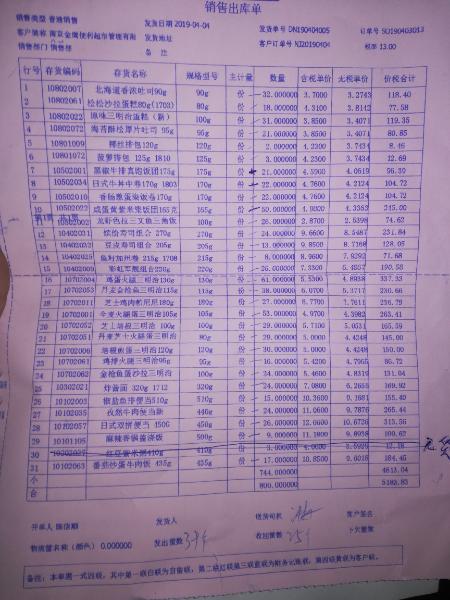 销售出库单
销售类型 普通销售
发货日期 2019-04-04
发货单号 DN190404005
订单号 SO190403013
客户简称 南京金鹰便利超市管理有限
客户订单号 NJ20190404
税率 13.00
销售部门 销售部
备 注
行号 存货编码 存货名称 规格型号 主计量 数量 含税单价 无税单价 价税合计
1 10802007 北海道香浓吐司90g 90g 份 32.000000 3.7000 3.2743 118.40
2 10802061 松松沙拉蛋糕80g(1703) 80g 份 18.000000 4.3100 3.8142 77.58
3 10802022 原味三明治蛋糕（新） 100g 份 31.000000 3.8500 3.4071 119.35
4 10802072 海苔酥松厚片吐司 95g 95g 份 21.000000 3.8500 3.4071 80.85
5 10801009 椰丝排包120g 120g 份 2.000000 4.2300 3.7434 8.46
6 10801072 菠萝排包 125g 1810 125g 份 3.000000 4.2300 3.7434 12.69
7 10502001 黑椒牛排真饱饭团175g 175g 份 21.000000 4.5900 4.0619 96.39
8 10502034 日式牛丼中卷170g 1803 170g 份 22.000000 4.7600 4.2124 104.72
9 10502010 香肠熏蛋淡饭卷170g 170g 份 22.000000 4.7600 4.2124 104.72
10 10502022 咸蛋黄紫米粢饭团165克 165g 份 50.000000 4.9000 4.3362 245.00
11 100g 份 26.000000 2.8700 2.5398 74.62
12 10402031 缤纷寿司组合 270g 270g 份 24.000000 9.6600 8.5487 231.84
13 10402032 豆皮寿司组合 205g 205g 份 13.000000 9.8500 8.7168 128.05
14 10402025 鱼籽加州卷 215g 1708 215g 份 8.000000 8.9600 7.9292 71.68
15 10402009 彩虹军舰组合220g 220g 份 26.000000 7.3300 190.58
16 10702004 鸡蛋火腿三明治130g 130g 份 61.000000 5.5300 4.8938 337.33
17 10702053 丹麦金枪鱼三明治115g 115g 份 38.000000 6.0700 5.3717 230.66
18 10702011 芝士鸡肉帕尼尼180g 180g 份 27.000000 8.7700 7.7611 236.79
19 10702001 全麦火腿蛋三明治105g 105g 份 53.000000 4.9700 4.3982 263.41
20 10702052 芝士培根三明治 100g 100g 份 29.000000 5.7100 5.0531 165.59
21 10702051 丹麦芝士火腿蛋三明治 80g 份 29.000000 5.0000 4.4248 145.00
22 10702006 培根煎蛋三明治120g 120g 份 30.000000 5.0000 4.4248 150.00
23 10702061 鸡排火腿三明治95g 95g 份 16.000000 5.4200 4.7965 86.72
24 10702062 金枪鱼蛋沙拉三明治 100g 份 24.000000 5.4600 4.8319 131.04
25 10302021 炸酱面 320g 1712 320g 份 24.000000 7.0800 6.2655 169.92
26 10102003 椒盐鱼排便当510g 510g 份 15.000000 10.3600 9.1681 155.40
27 10102035 孜然牛肉便当新 440g 份 24.000000 11.0600 9.7876 265.44
28 10102057 日式双拼便当 450G 450g 份 26.000000 12.0600 10.6726 313.56
29 10101105 麻辣香锅盖浇饭 500g 份 9.000000 11.1800 9.8938 100.62
30 10302027 红豆紫米粥410g 410g 份
31 10102063 番茄炒蛋牛肉饭 435g 435g 份 17.000000 10.8500 9.6018 184.45
小 744.000000 4613.04
合 800.000000 5183.83
开单人
发货人
送货司机
客户签名
物流篮名称（颜色） 0.000000
发出篮数
收回篮数
下欠篮数
备注：本单据一式四联，其中第一联白联为自留联，第二联红联第三联蓝联为财务记账联，第四联黄联为客户联。